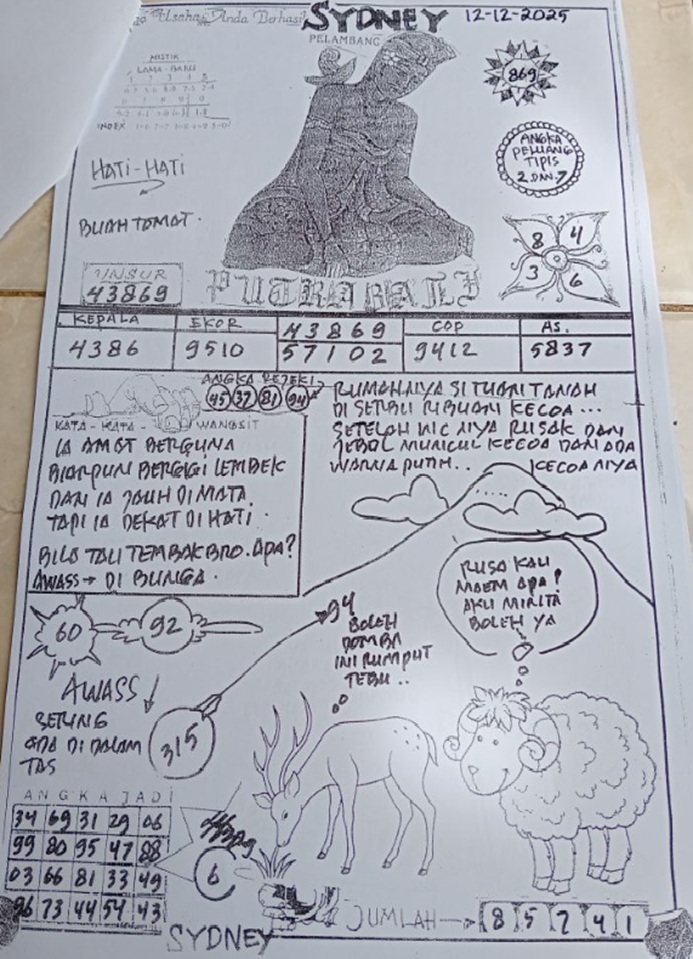 Anda Berhasil
SYDNEY 12-12-2025
PELAMBANG
MISTIK
LAMA - BARU
INDEX
869
HATI-HATI
ANGKA
PELUANG
TIPIS
2 DAN 7
BUAH TOMAT.
8 4
3 6
UNSUR
43869
PUTRA BALI
KEPALA EKOR 43869 COP AS.
4386 9510 57102 9412 5837
ANGKA REJEKI
45 32 81 94
KATA - KATA - WANGSIT
IA AMAT BERGUNA
BIARPUN BERGIGI LEMBEK
DAN IA JAUH DI MATA
TAPI IA DEKAT DI HATI.
BILA TALI TEMBAK BRO. APA?
AWASS → DI BUNGA.
RUMAHNYA SI TUAN TANAH
DI SERBU RIBUAN KECOA...
SETELAH WC NYA RUSAK DAN
JEBOL MUNCUL KECOA DAN ADA
WARNA PUTIH.. KECOA NYA
60 92
94
BOLEH
DOMBA
INI RUMPUT
TEBU..
RUSA KAU
MAEM APA?
AKU MINTA
BOLEH YA
AWASS
ADA DI DALAM
TAS
315
ANGKA JADI
34 69 31 29 06
99 80 95 47 88
03 66 81 33 49
96 73 44 54 43
6
JUMLAH → 8 5 7 4 1
SYDNEY